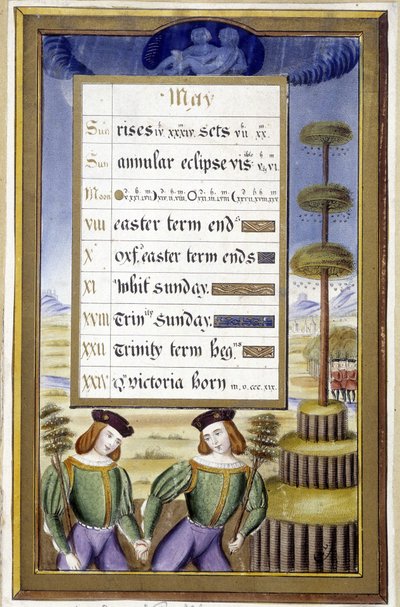 May
Sun rises iv xxxiv sets vii xx
Sun annular eclipse visible
Moon
VIII easter term ends
X oxf. easter term ends
XI Whit Sunday.
XVIII Trinity Sunday.
XXII Trinity term begns
XXIV Q. Victoria born m. d. ccc. xix.